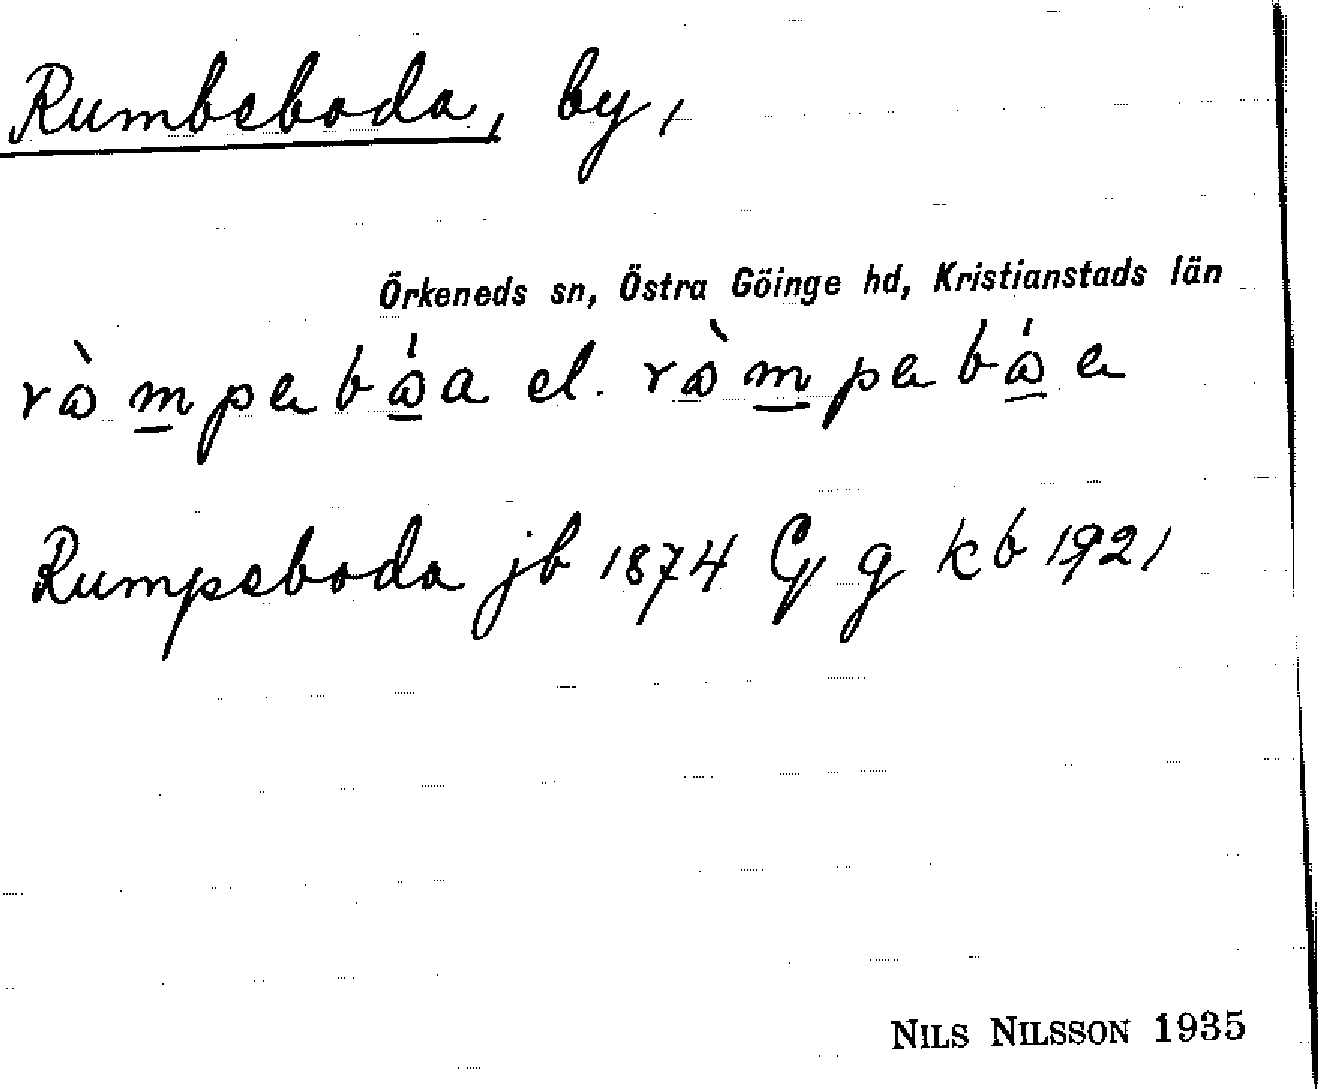 Rumbeboda, by,
Örkeneds sn, Östra Göinge hd, Kristianstads län
el.
Rumpeboda jb 1874 Gg kb 1921
NILS NILSSON 1935